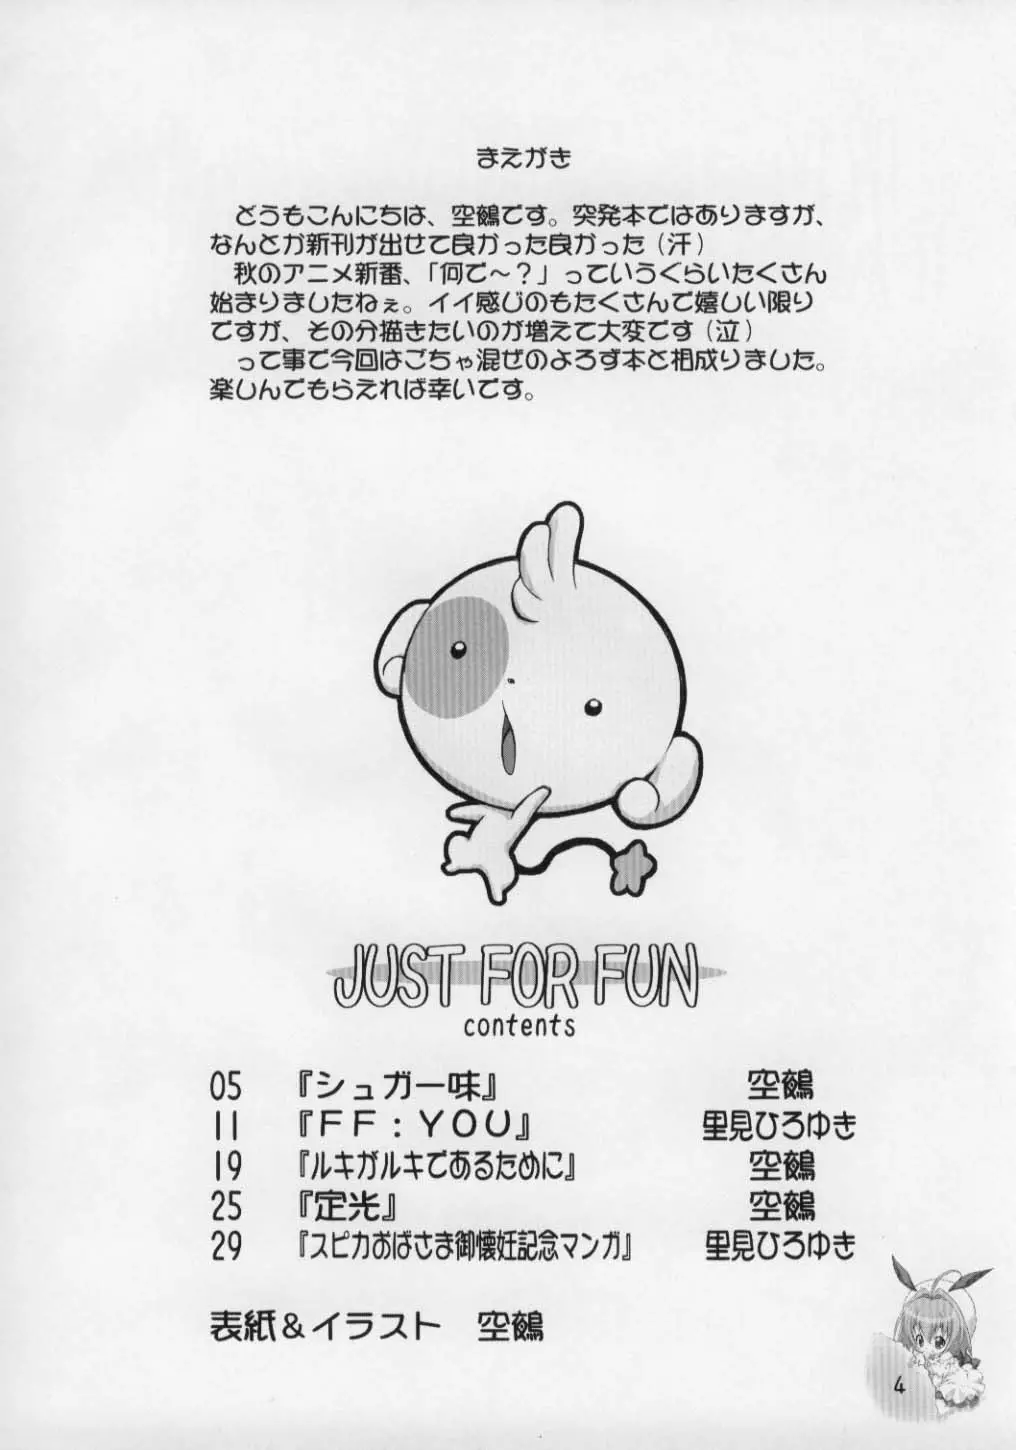 まえがき
どうもこんにちは、空鶴です。突発本ではありますが、
なんとか新刊が出せて良かった良かった（汗）
秋のアニメ新番、「何で～？」っていうくらいたくさん
始まりましたねぇ。イイ感じのもたくさんで嬉しい限り
ですが、その分描きたいのが増えて大変です（泣）
って事で今回はごちゃ混ぜのよろず本と相成りました。
楽しんでもらえれば幸いです。
JUST FOR FUN
contents
05 『シュガー味』 空鶴
11 『ＦＦ：ＹＯＵ』 里見ひろゆき
19 『ルキがルキであるために』 空鶴
25 『定光』 空鶴
29 『スピカおばさま御懐妊記念マンガ』 里見ひろゆき
表紙＆イラスト 空鶴
4